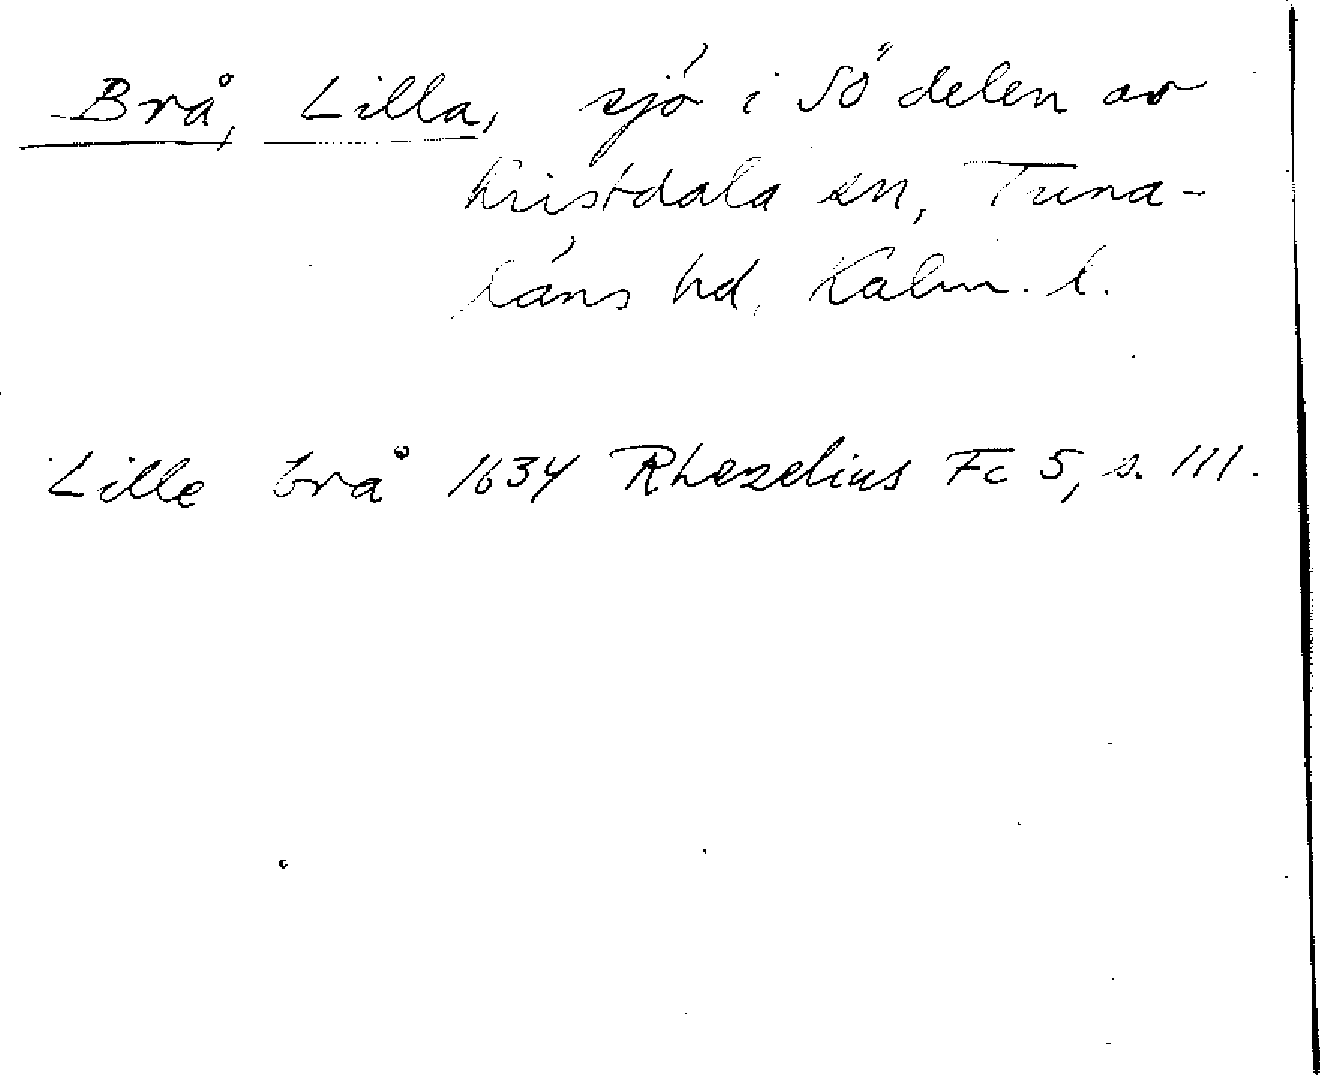 Brå, Lilla, sjö i Sö delen av
Kristdala sn, Tuna-
läns hd, Kalm. l.
Lille brå 1634 Rhezelius Fc 5, s. 111.